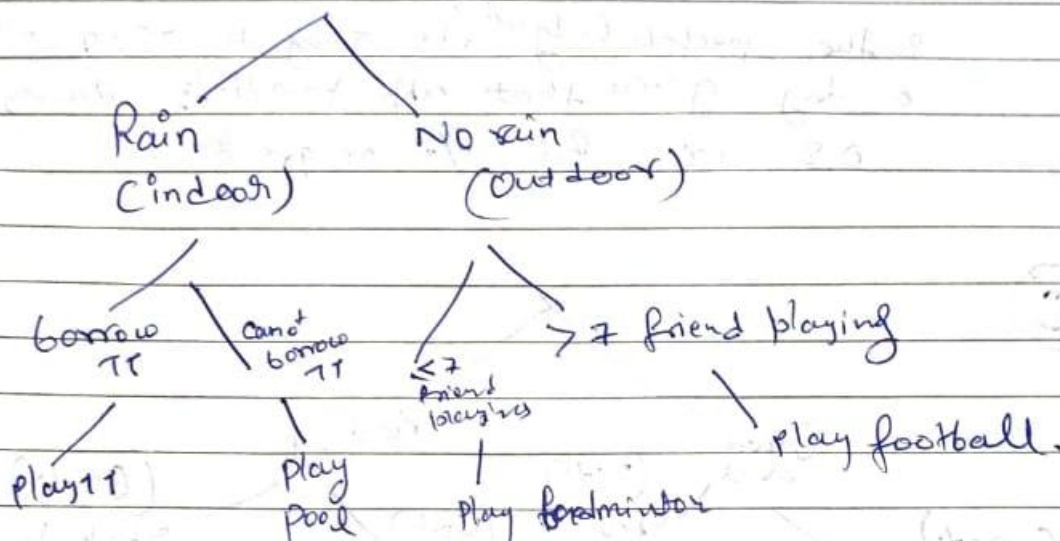 Rain
No rain
(indoor)
(Outdoor)
borrow
TT
Canot
borrow
TT
≤ 7
friend
playing
> 7 friend playing
play TT
play
pool
Play badmintor
play football.